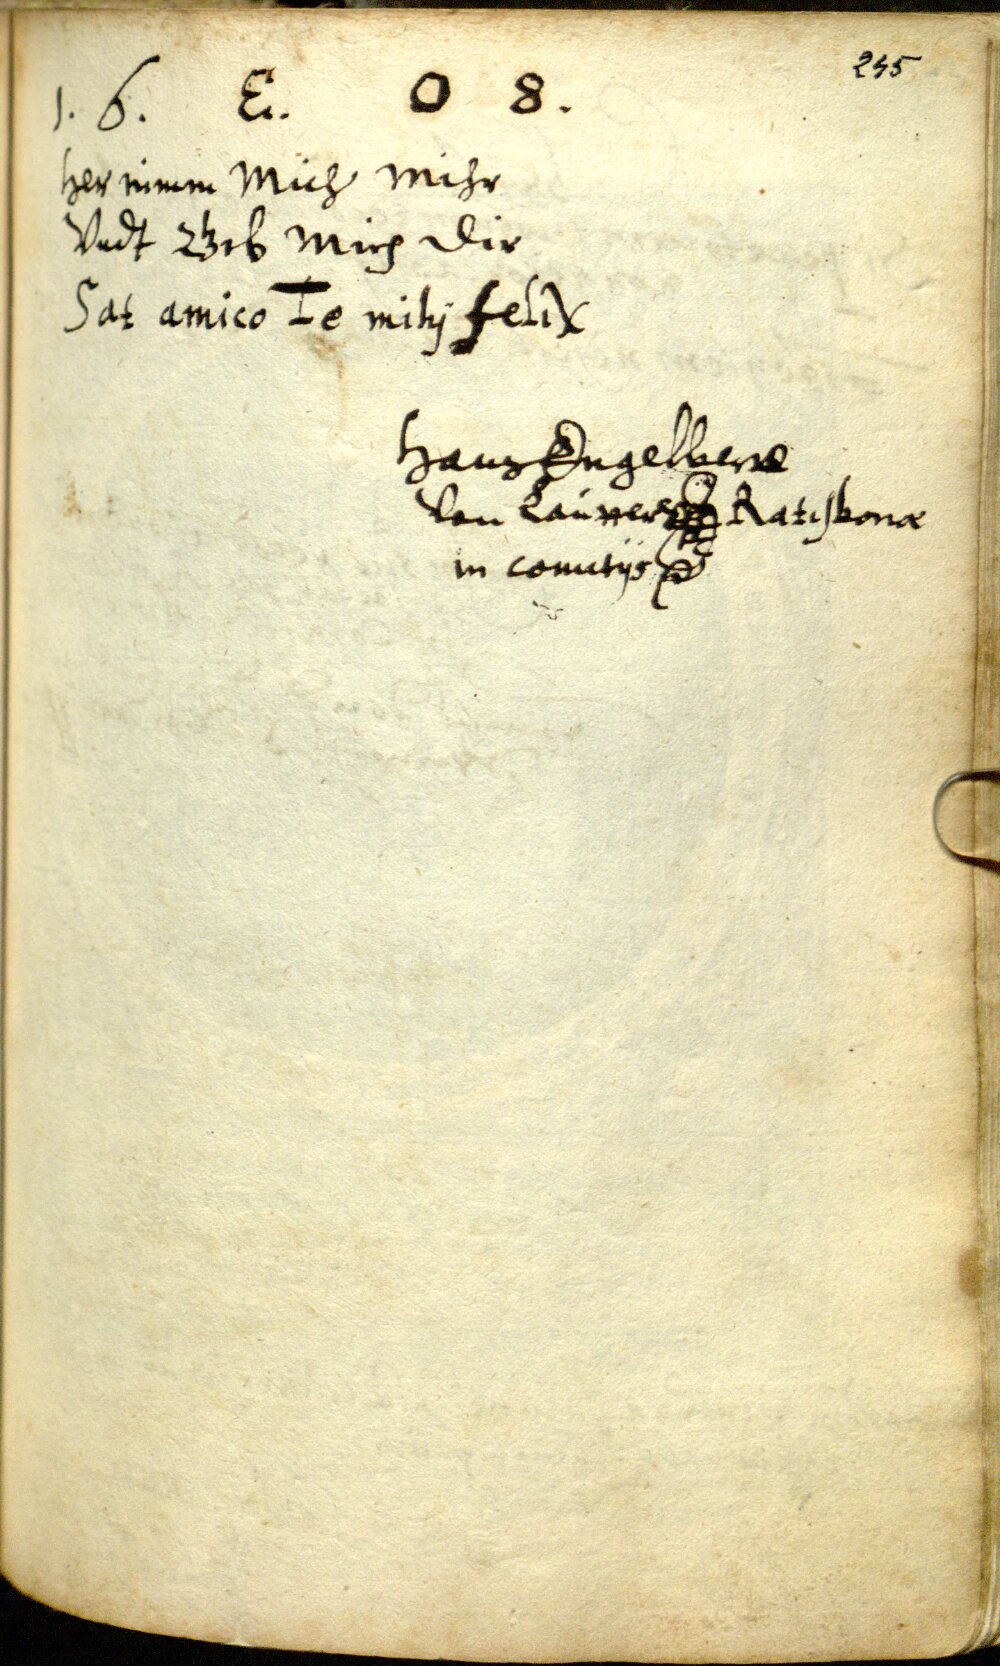 245
1. 6. E. 0 8.
Her nimm Mich Mihr
Vndt Gib Mich Dir
Sat amico Te mihj felix
Hans Engelbert
Von Lautter Ratisbonæ
in comitijs